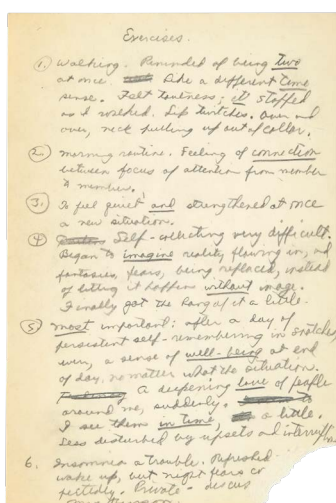 Exercises.
1. Walking. Reminded of being two
at once. Like a different time
sense. Felt tautness; it stopped
as I walked. Lip twitches. Over and
over, neck pulling up out of collar.
2. Morning routine. Feeling of connection
between focus of attention from member
to member.
3. To feel quiet and strengthened at once
in a new situation.
4. Self-collecting very difficult.
Began to imagine reality flowing in, and
fantasies, fears, being replaced, instead
of letting it happen without image.
Finally got the hang of it a little.
5. Most important: after a day of
persistent self-remembering in snatches
even, a sense of well-being at end
of day, no matter what the situation.
A deepening love of people
around me, suddenly.
I see them in time, a little.
Less disturbed by upsets and
6. Insomnia a trouble. Refreshed
wake up, but night fears or
Private - discus